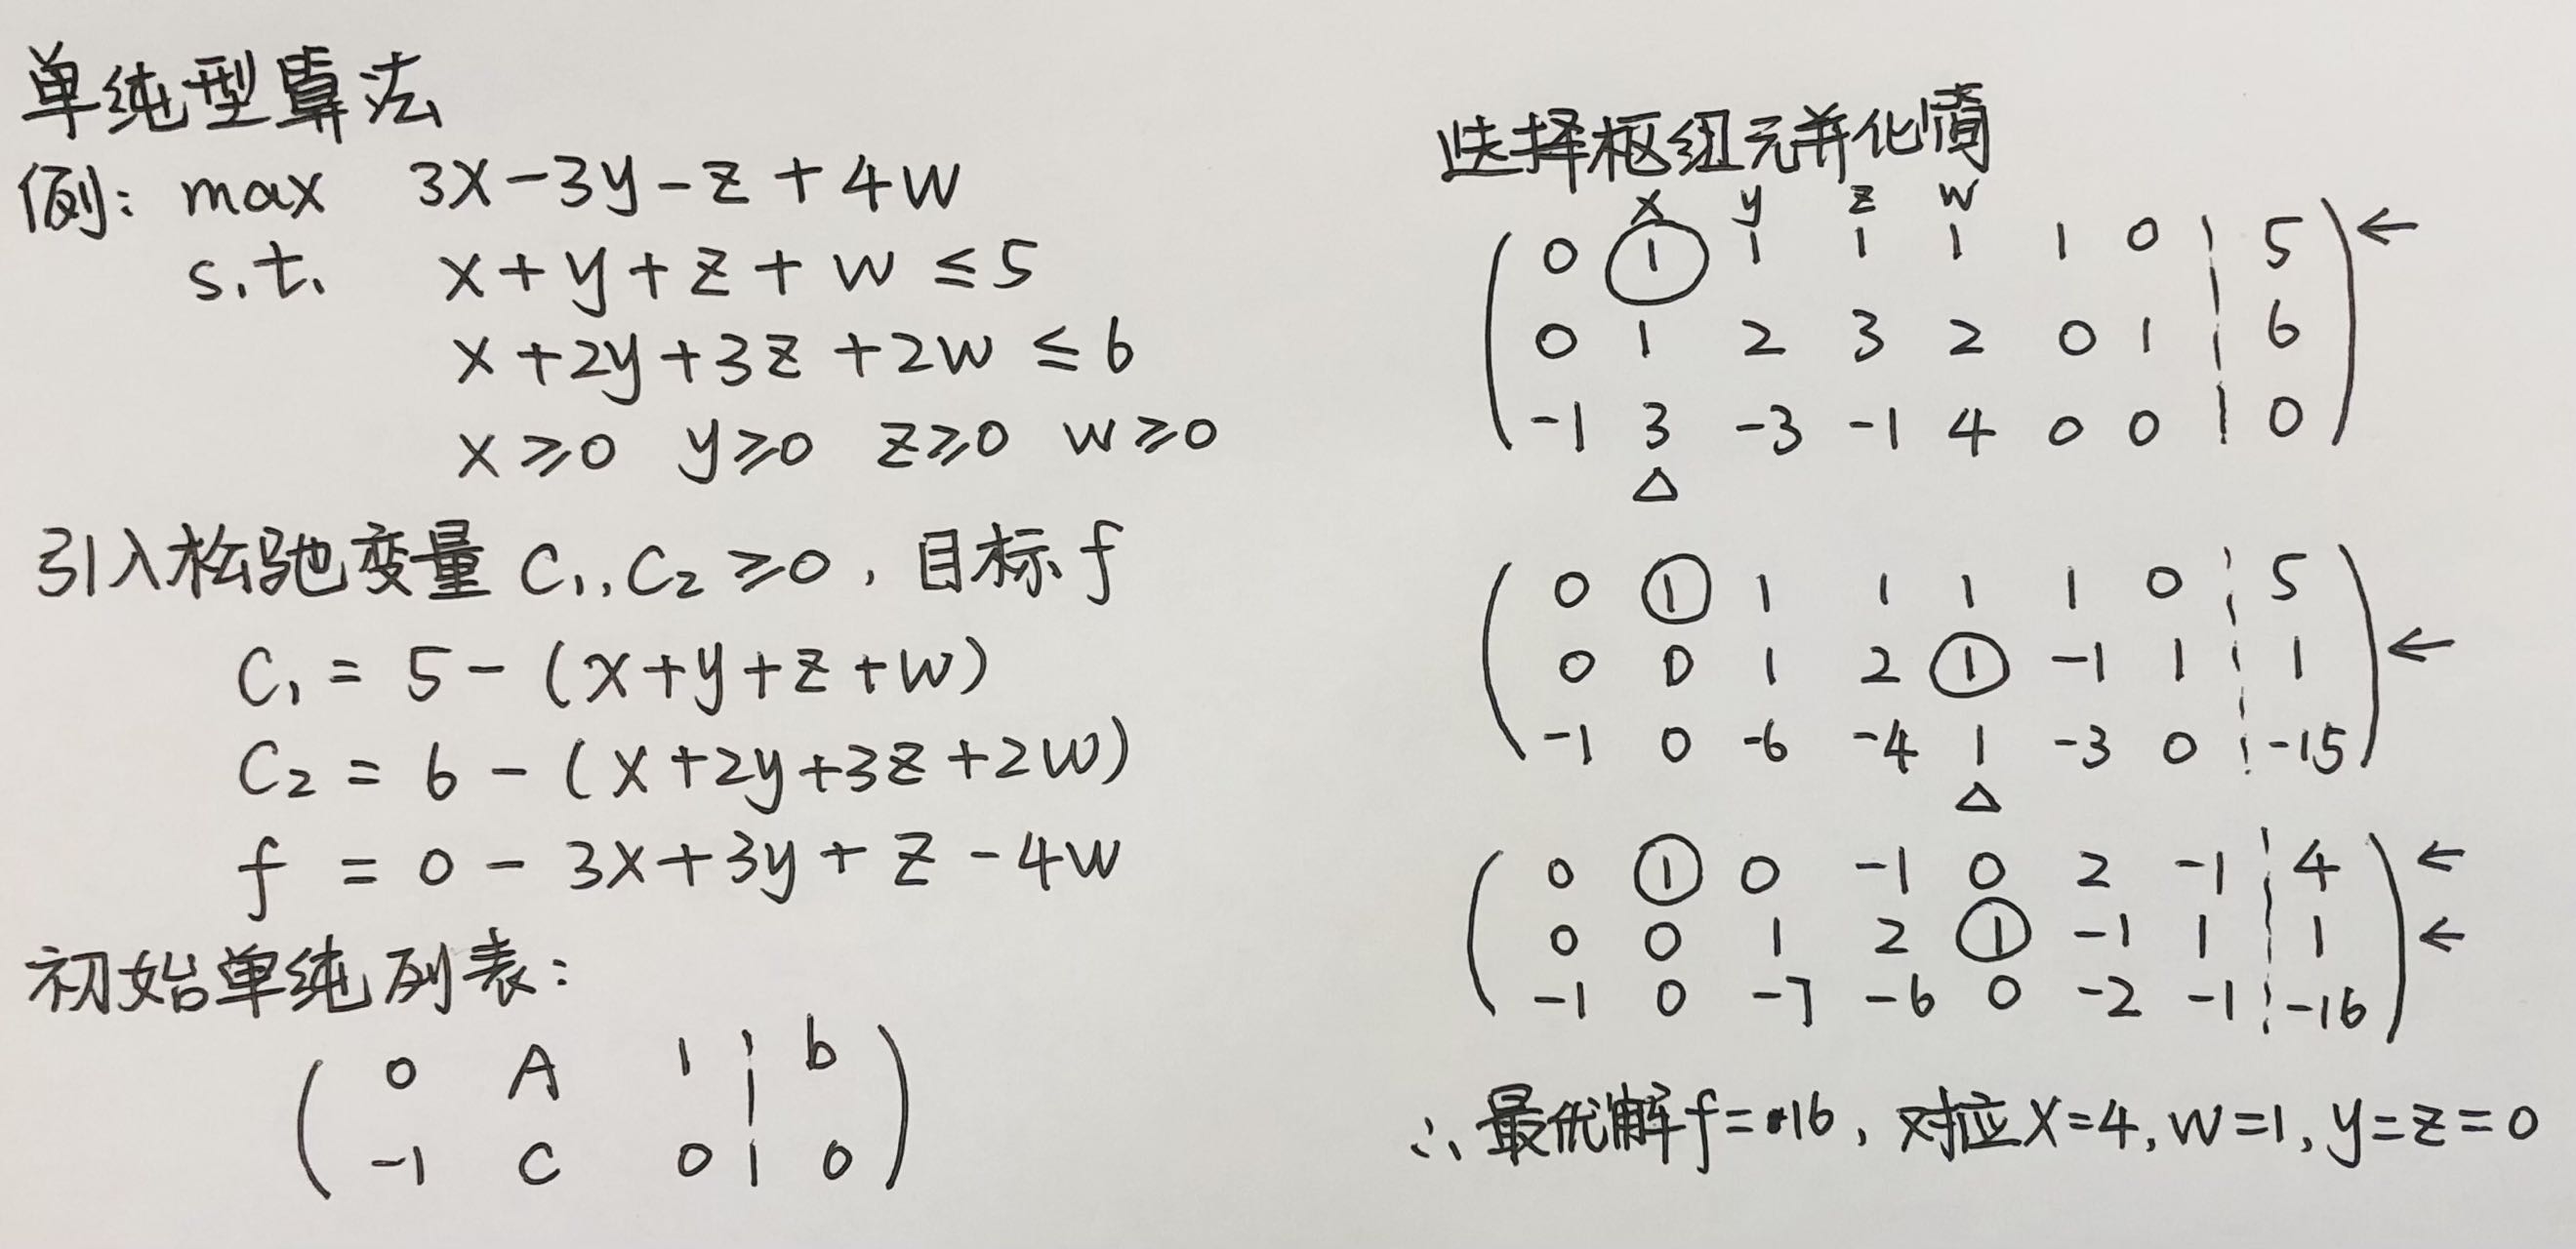 单纯型算法
例: max 3x-3y-z+4w
s.t. x+y+z+w≤5
x+2y+3z+2w≤6
x≥0 y≥0 z≥0 w≥0
引入松弛变量 C₁,C₂≥0, 目标f
C₁ = 5-(x+y+z+w)
C₂ = 6-(x+2y+3z+2w)
f = 0-3x+3y+z-4w
初始单纯列表:
0 A 1 b
-1 C 0 0
选择枢纽元并化简
x y z w
0 1 1 1 1 1 0 5 ←
0 1 2 3 2 0 1 6
-1 3 -3 -1 4 0 0 0
△
0 1 1 1 1 1 0 5
0 0 1 2 1 -1 1 1 ←
-1 0 -6 -4 1 -3 0 -15
△
0 1 0 -1 0 2 -1 4 ←
0 0 1 2 1 -1 1 1 ←
-1 0 -7 -6 0 -2 -1 -16
∴ 最优解f=16, 对应x=4, w=1, y=z=0